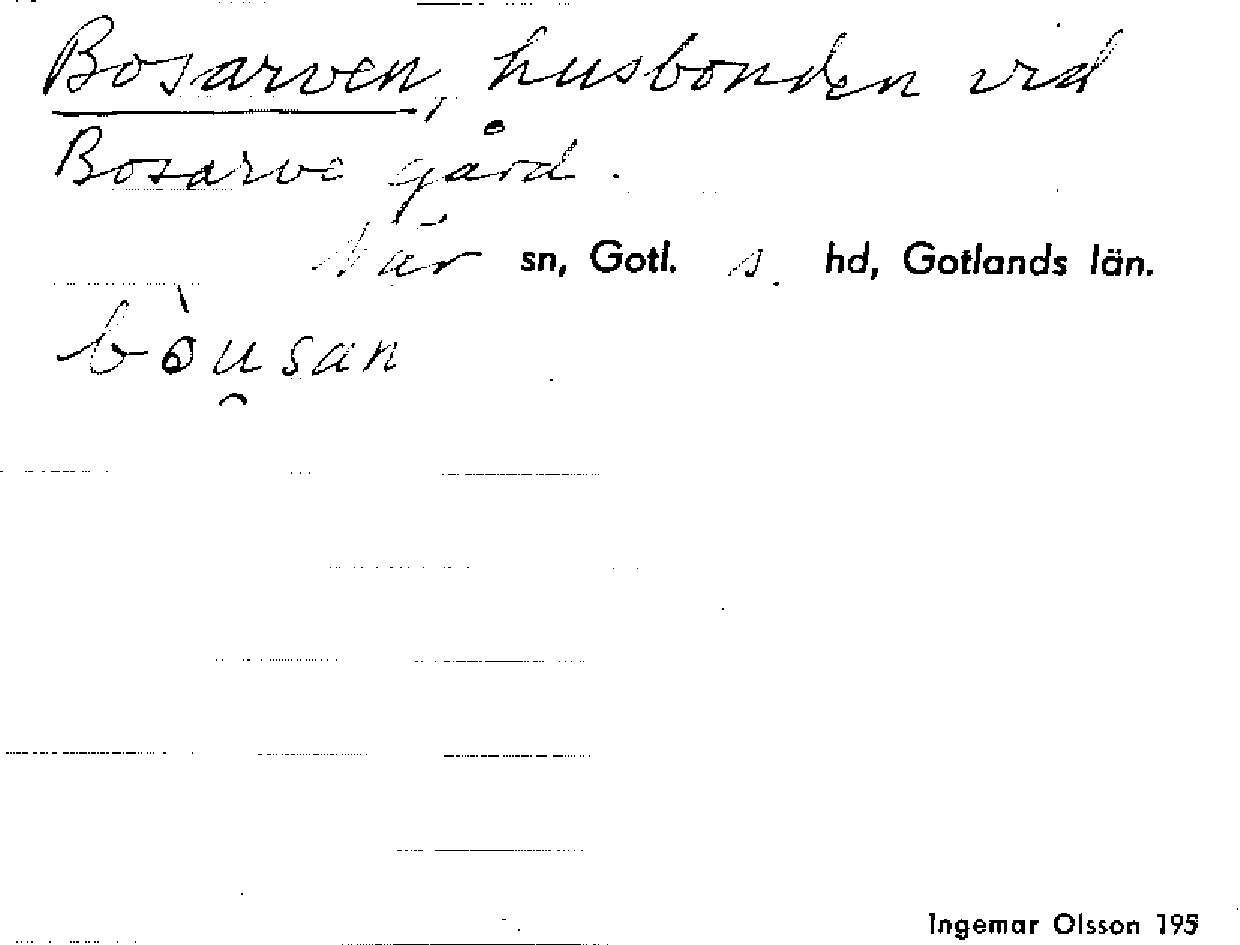 Bosarven, husbonden vid
Bosarve gård.
När sn, Gotl. s. hd, Gotlands län.
bòu̯san
Ingemar Olsson 195